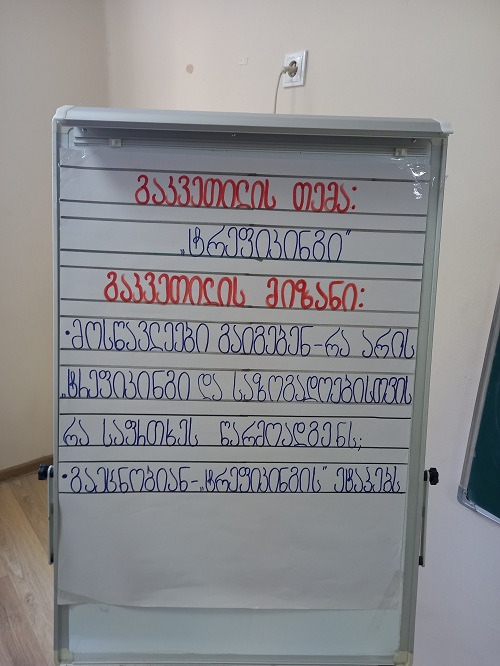 გაკვეთილის თემა:
„ტრეფიკინგი“
გაკვეთილის მიზანი:
• მოსწავლეები გაიგებენ-რა არის
„ტრეფიკინგი და საზოგადოებისთვის
რა საფრთხეს წარმოადგენს;
• გაეცნობიან-„ტრეფიკინგის“ ეტაპებს